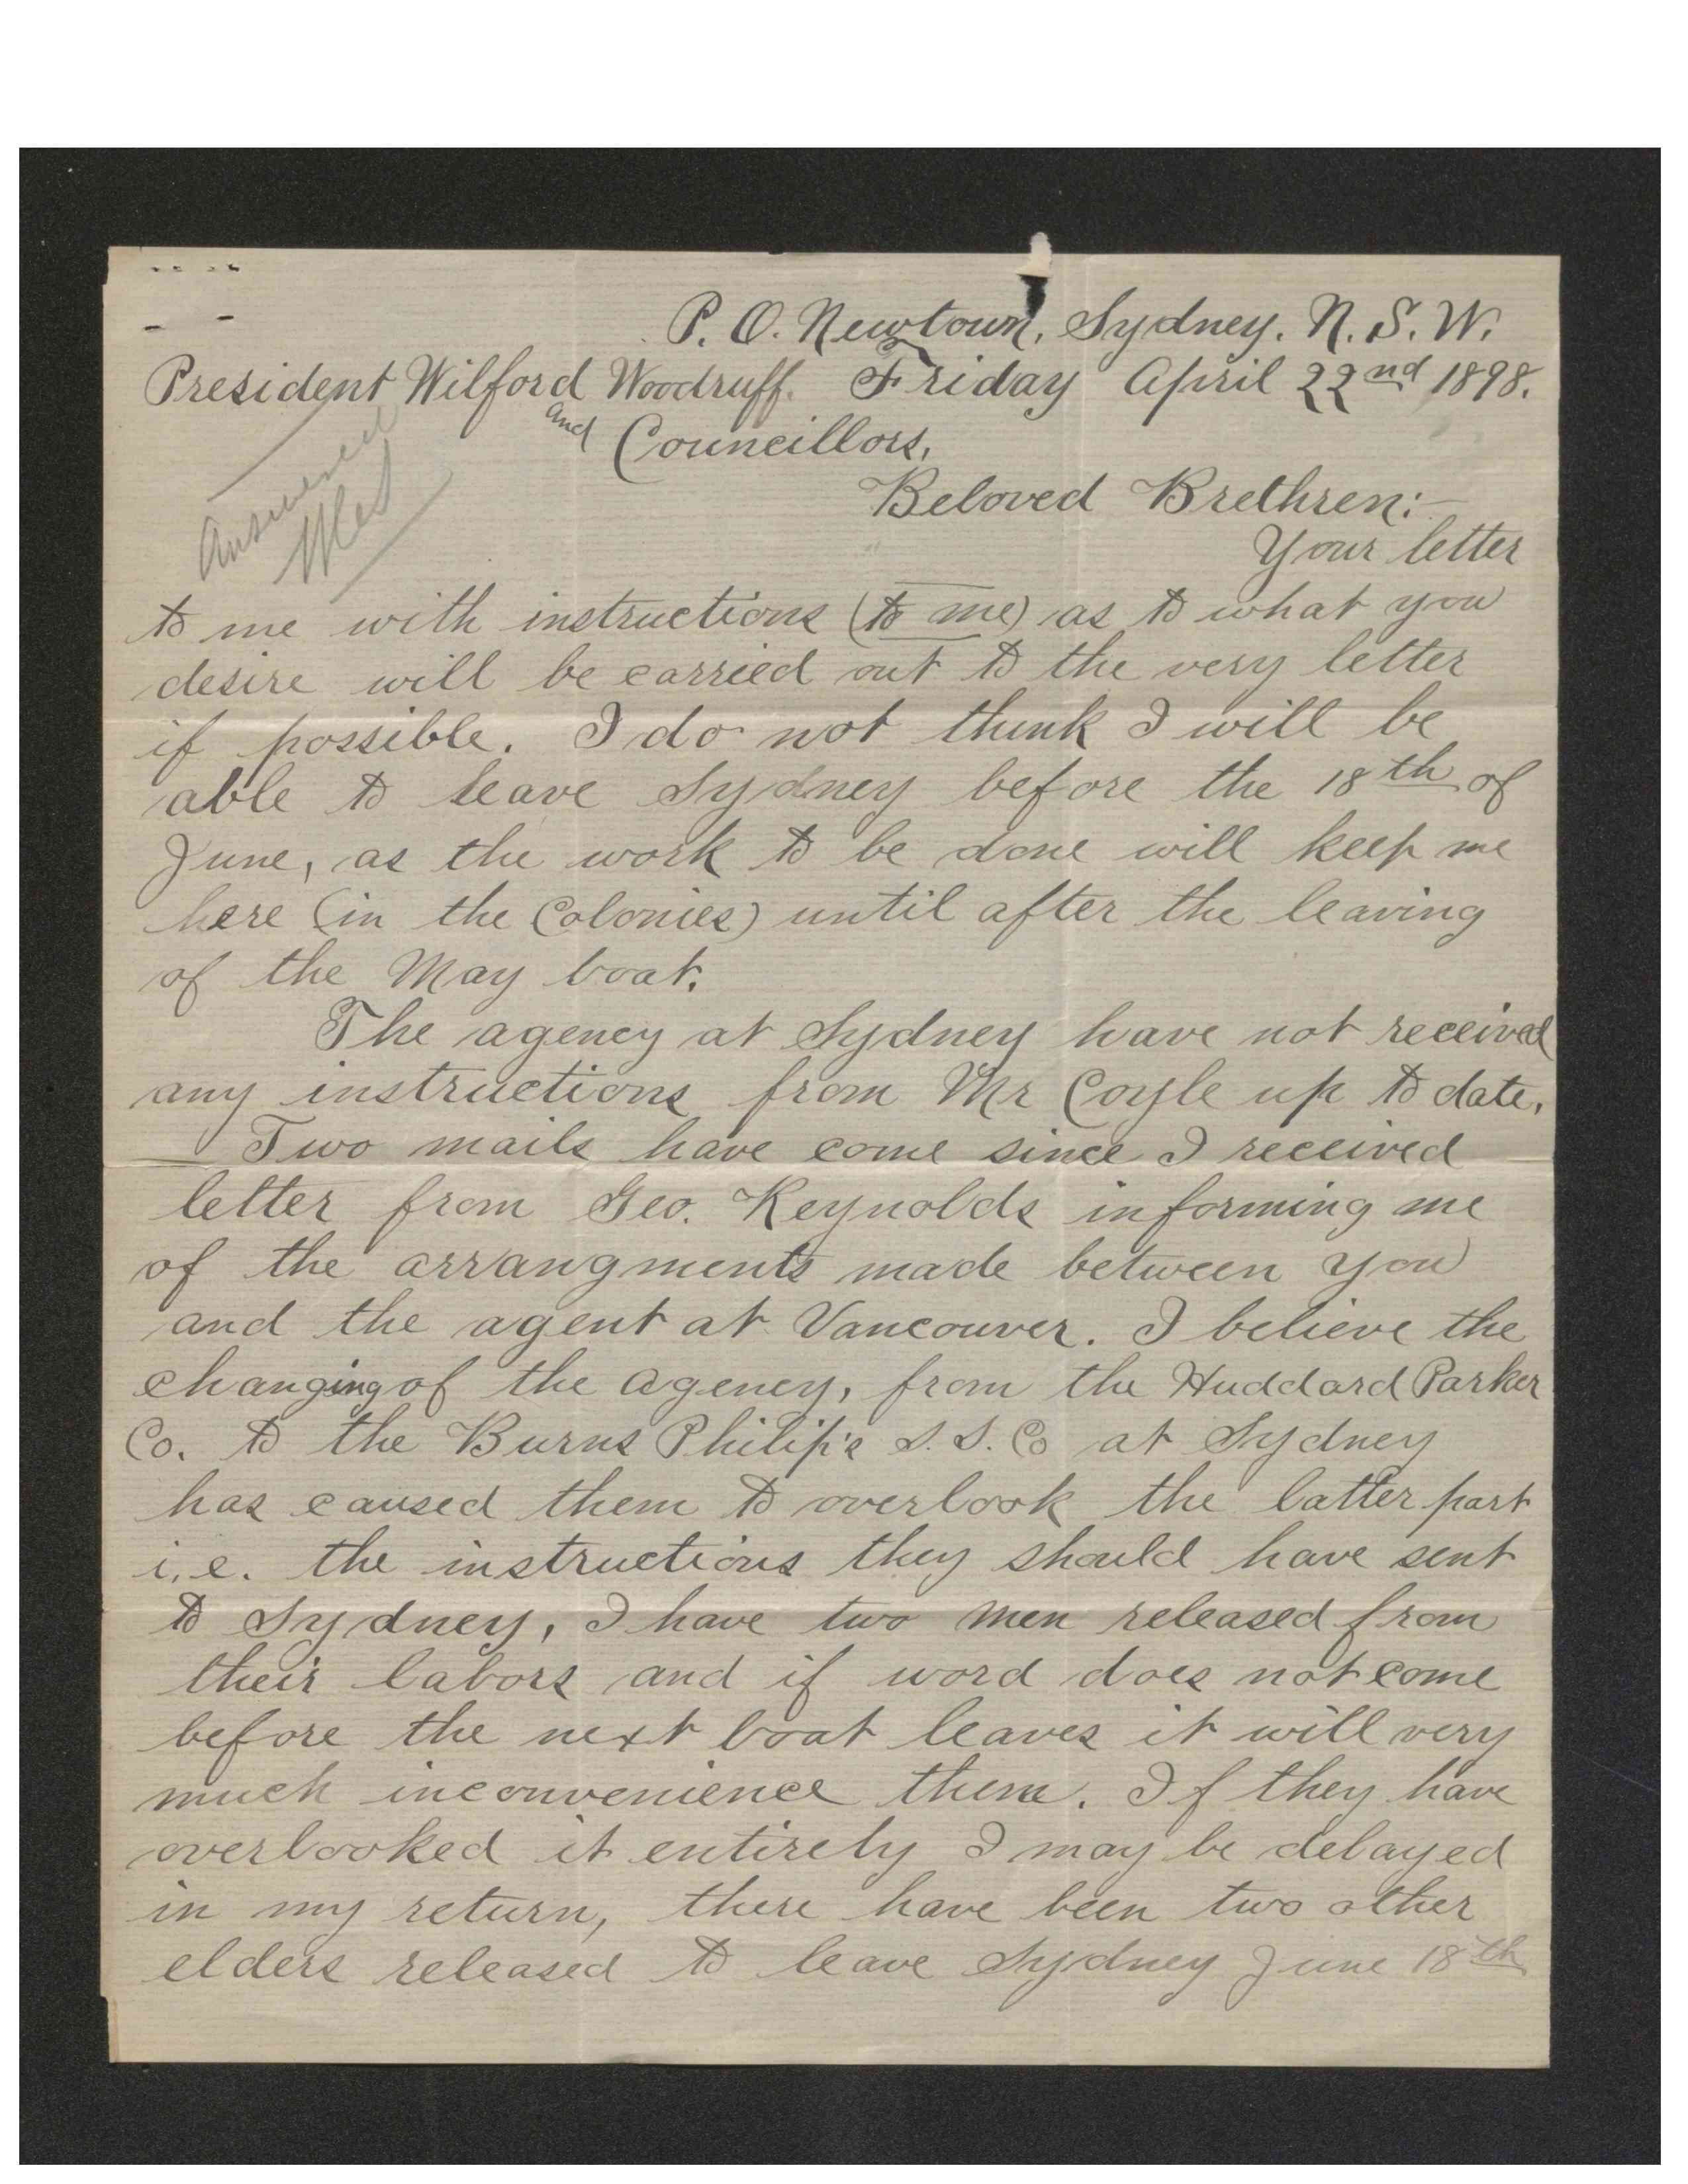 P. O. Newtown, Sydney. N. S. W.
President Wilford Woodruff. Friday April 22nd 1898.
and Councillors,
Beloved Brethren:—
Answered
Your letter
to me with instructions (to me) as to what you
desire will be carried out to the very letter
if possible. I do not think I will be
able to leave Sydney before the 18th of
June, as the work to be done will keep me
here (in the Colonies) until after the leaving
of the May boat.
The agency at Sydney have not received
any instructions from Mr Coyle up to date,
Two mails have come since I received
letter from Geo. Reynolds informing me
of the arrangments made between you
and the agent at Vancouver. I believe the
changing of the agency, from the Huddard Parker
Co. to the Burns Philip's S. S. Co at Sydney
has caused them to overlook the latter part
i.e. the instructions they should have sent
to Sydney, I have two men released from
their labors and if word does not come
before the next boat leaves it will very
much inconvenience them. If they have
overlooked it entirely I may be delayed
in my return, there have been two other
elders released to leave Sydney June 18th